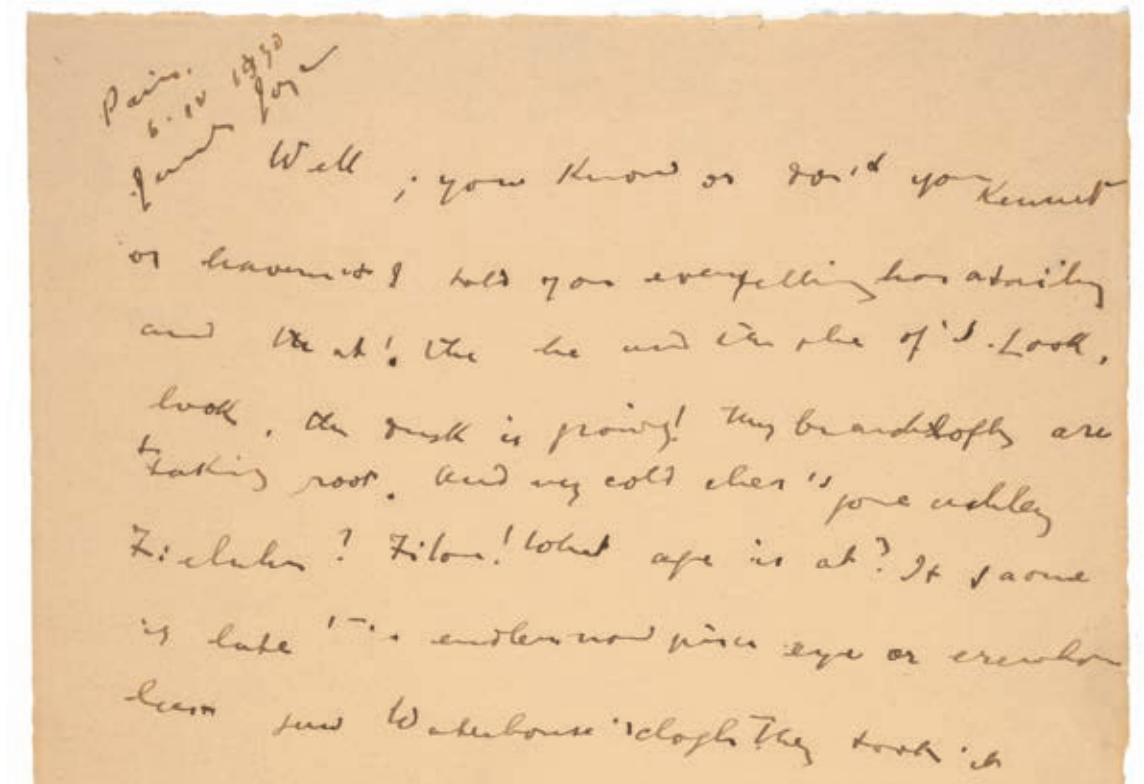 Paris.
James Joyce
Well, you know or don't you kennet
or haven't I told you every telling has a tailing
and that's the he and the she of it. Look,
look, the dusk is growing! My branches lofty are
taking root. And my cold cher's gone ashley
Fieluhr? Filou! What age is at? It saon
is late. 'Tis endless now since eye or erewhon
last saw Waterhouse's clogh. They took it